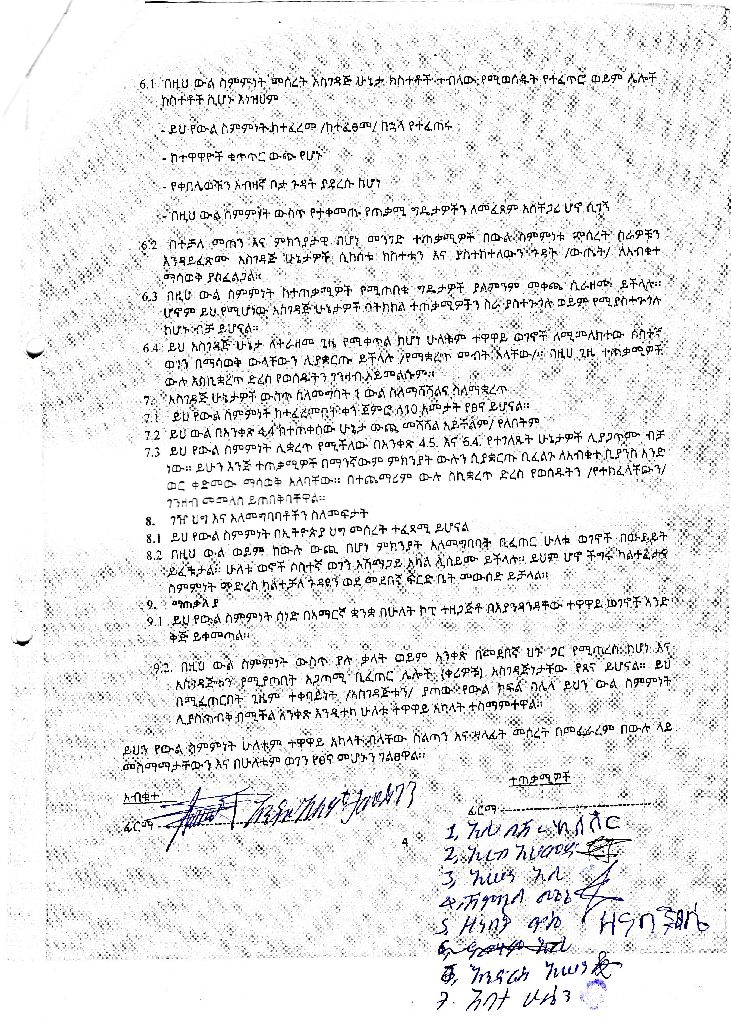 6.1 በዚህ ውል ስምምነት መሰረት አስገዳጅ ሁኔታ ክስተቶች ተብለው የሚወሰዱት የተፈጥሮ ወይም ሌሎች
ክስተቶች ሲሆኑ እነዝህም
- ይህ የውል ስምምነት ከተፈረመ /ከተፈፀመ/ በኋላ የተፈጠሩ
- ከተዋዋዮች ቁጥጥር ውጭ የሆኑ
- የቀበሌወቹን አብዛኛ ቦታ ጉዳት ያደረሱ ከሆነ
- በዚህ ውል ስምምነት ውስጥ የተቀመጡ የጠቃሚ ግዴታዎችን ለመፈጸም አስቸጋሪ ሆኖ ሲገኝ
6.2 በተቻለ መጠን እና ምክንያታዊ በሆነ መንገድ ተጠቃሚዎች በውል ስምምነቱ መሰረት ስራዎቹን
እንዳይፈጽሙ አስገዳጅ ሁኔታዎች ሲከሰቱ ክስተቱን እና ያስከተለውን ጉዳት /ውጤት/ ለአብቁተ
ማሳወቅ ያስፈልጋል።
6.3 በዚህ ውል ስምምነት ከተጠቃሚዎች የሚጠበቁ ግዴታዎች ያለምንም መቀጫ ሲራዘሙ ይችላሉ።
ሆኖም ይህ የሚሆነው አስገዳጅ ሁኔታዎች በትክክል ተጠቃሚዎችን ስራ ያስተጓጎሉ ወይም የሚያስተጓጎሉ
ከሆኑ ብቻ ይሆናል።
6.4 ይህ አስገዳጅ ሁኔታ ለተራዘመ ጊዜ የሚቀጥል ከሆነ ሁለቱም ተዋዋይ ወገኖች ለሚመለከተው ሶስተኛ
ወገን በማሳወቅ ውላቸውን ሊያቋርጡ ይችላሉ /የማቋረጥ መብት አላቸው/። በዚህ ጊዜ ተጠቃሚዎች
ውሉ እስኪቋረጥ ድረስ የወሰዱትን ገንዘብ አይመልሱም።
7. አስገዳጅ ሁኔታዎች ውስጥ ስለመግባት ፤ ውል ስለማሻሻልና ስለማቋረጥ
7.1 ይህ የውል ስምምነት ከተፈረመበት ቀን ጀምሮ ለ10 አመታት የፀና ይሆናል።
7.2 ይህ ውል በአንቀጽ 4.4 ከተጠቀሰው ሁኔታ ውጪ መሻሻል አይችልም/ የለበትም
7.3 ይህ የውል ስምምነት ሊቋረጥ የሚችለው በአንቀጽ 4.5. እና 6.4. የተገለጹት ሁኔታዎች ሊያጋጥሙ ብቻ
ነው። ይሁን እንጅ ተጠቃሚዎች በማንኛውም ምክንያት ውሉን ሲያቋርጡ ቢፈልጉ ለአብቁተ ቢያንስ አንድ
ወር ቀድመው ማሳወቅ አለባቸው። በተጨማሪም ውሉ ስኪቋረጥ ድረስ የወሰዱትን /የተከፈላቸውን/
ገንዘብ መመለስ ይጠበቅባቸዋል።
8. ገዥ ህግ እና አለመግባባቶችን ስለመፍታት
8.1 ይህ የውል ስምምነት በኢትዮጵያ ህግ መሰረት ተፈጻሚ ይሆናል
8.2 በዚህ ውል ወይም ከውሉ ውጪ በሆነ ምክንያት አለመግባባት ቢፈጠር ሁለቱ ወገኖች በውይይት
ይፈቱታል። ሁለቱ ወኖች ሶስተኛ ወገን አሸማጋይ አካል ሊሰይሙ ይችላሉ። ይህም ሆኖ ችግሩ ካልተፈታና
ስምምነት መድረስ ካልተቻለ ጉዳዩን ወደ መደበኛ ፍርድ ቤት መውሰድ ይቻላል።
9. ማጠቃለያ
9.1 ይህ የውል ስምምነት ሰነድ በአማርኛ ቋንቋ በሁለት ኮፒ ተዘጋጅቶ በእያንዳንዳቸው ተዋዋይ ወገኖች አንድ
ቅጅ ይቀመጣል።
9.2. በዚህ ውል ስምምነት ውስጥ ያሉ ቃላት ወይም አንቀጽ ከመደበኛ ህጉ ጋር የሚጣረስ ከሆነ እና
አስገዳጅቱን የሚያጣበት አጋጣሚ ቢፈጠር ሌሎች (ቀሪዎቹ) አስገዳጅነታቸው የጸና ይሆናል። ይህ
በሚፈጠርበት ጊዜም ተቀባይነት /አስገዳጅቱን/ ያጣው የውል ክፍል በሌላ ይህን ውል ስምምነት
ሊያስጠብቅ በሚችል አንቀጽ እንዲተካ ሁለቱ ተዋዋይ አካላት ተስማምተዋል።
ይህን የውል ስምምነት ሁለቱም ተዋዋይ አካላት ባላቸው ስልጣን እና ኃላፊት መሰረት በመፈራረም በውሉ ላይ
መስማማታቸውን እና በሁለቱም ወገን የፀና መሆኑን ገልፀዋል።
አብቁተ
ተጠቃሚዎች
ፊርማ
ፊርማ
4
1.
2.
3. አሀመድ አሊ
4.
5.
6.
7.